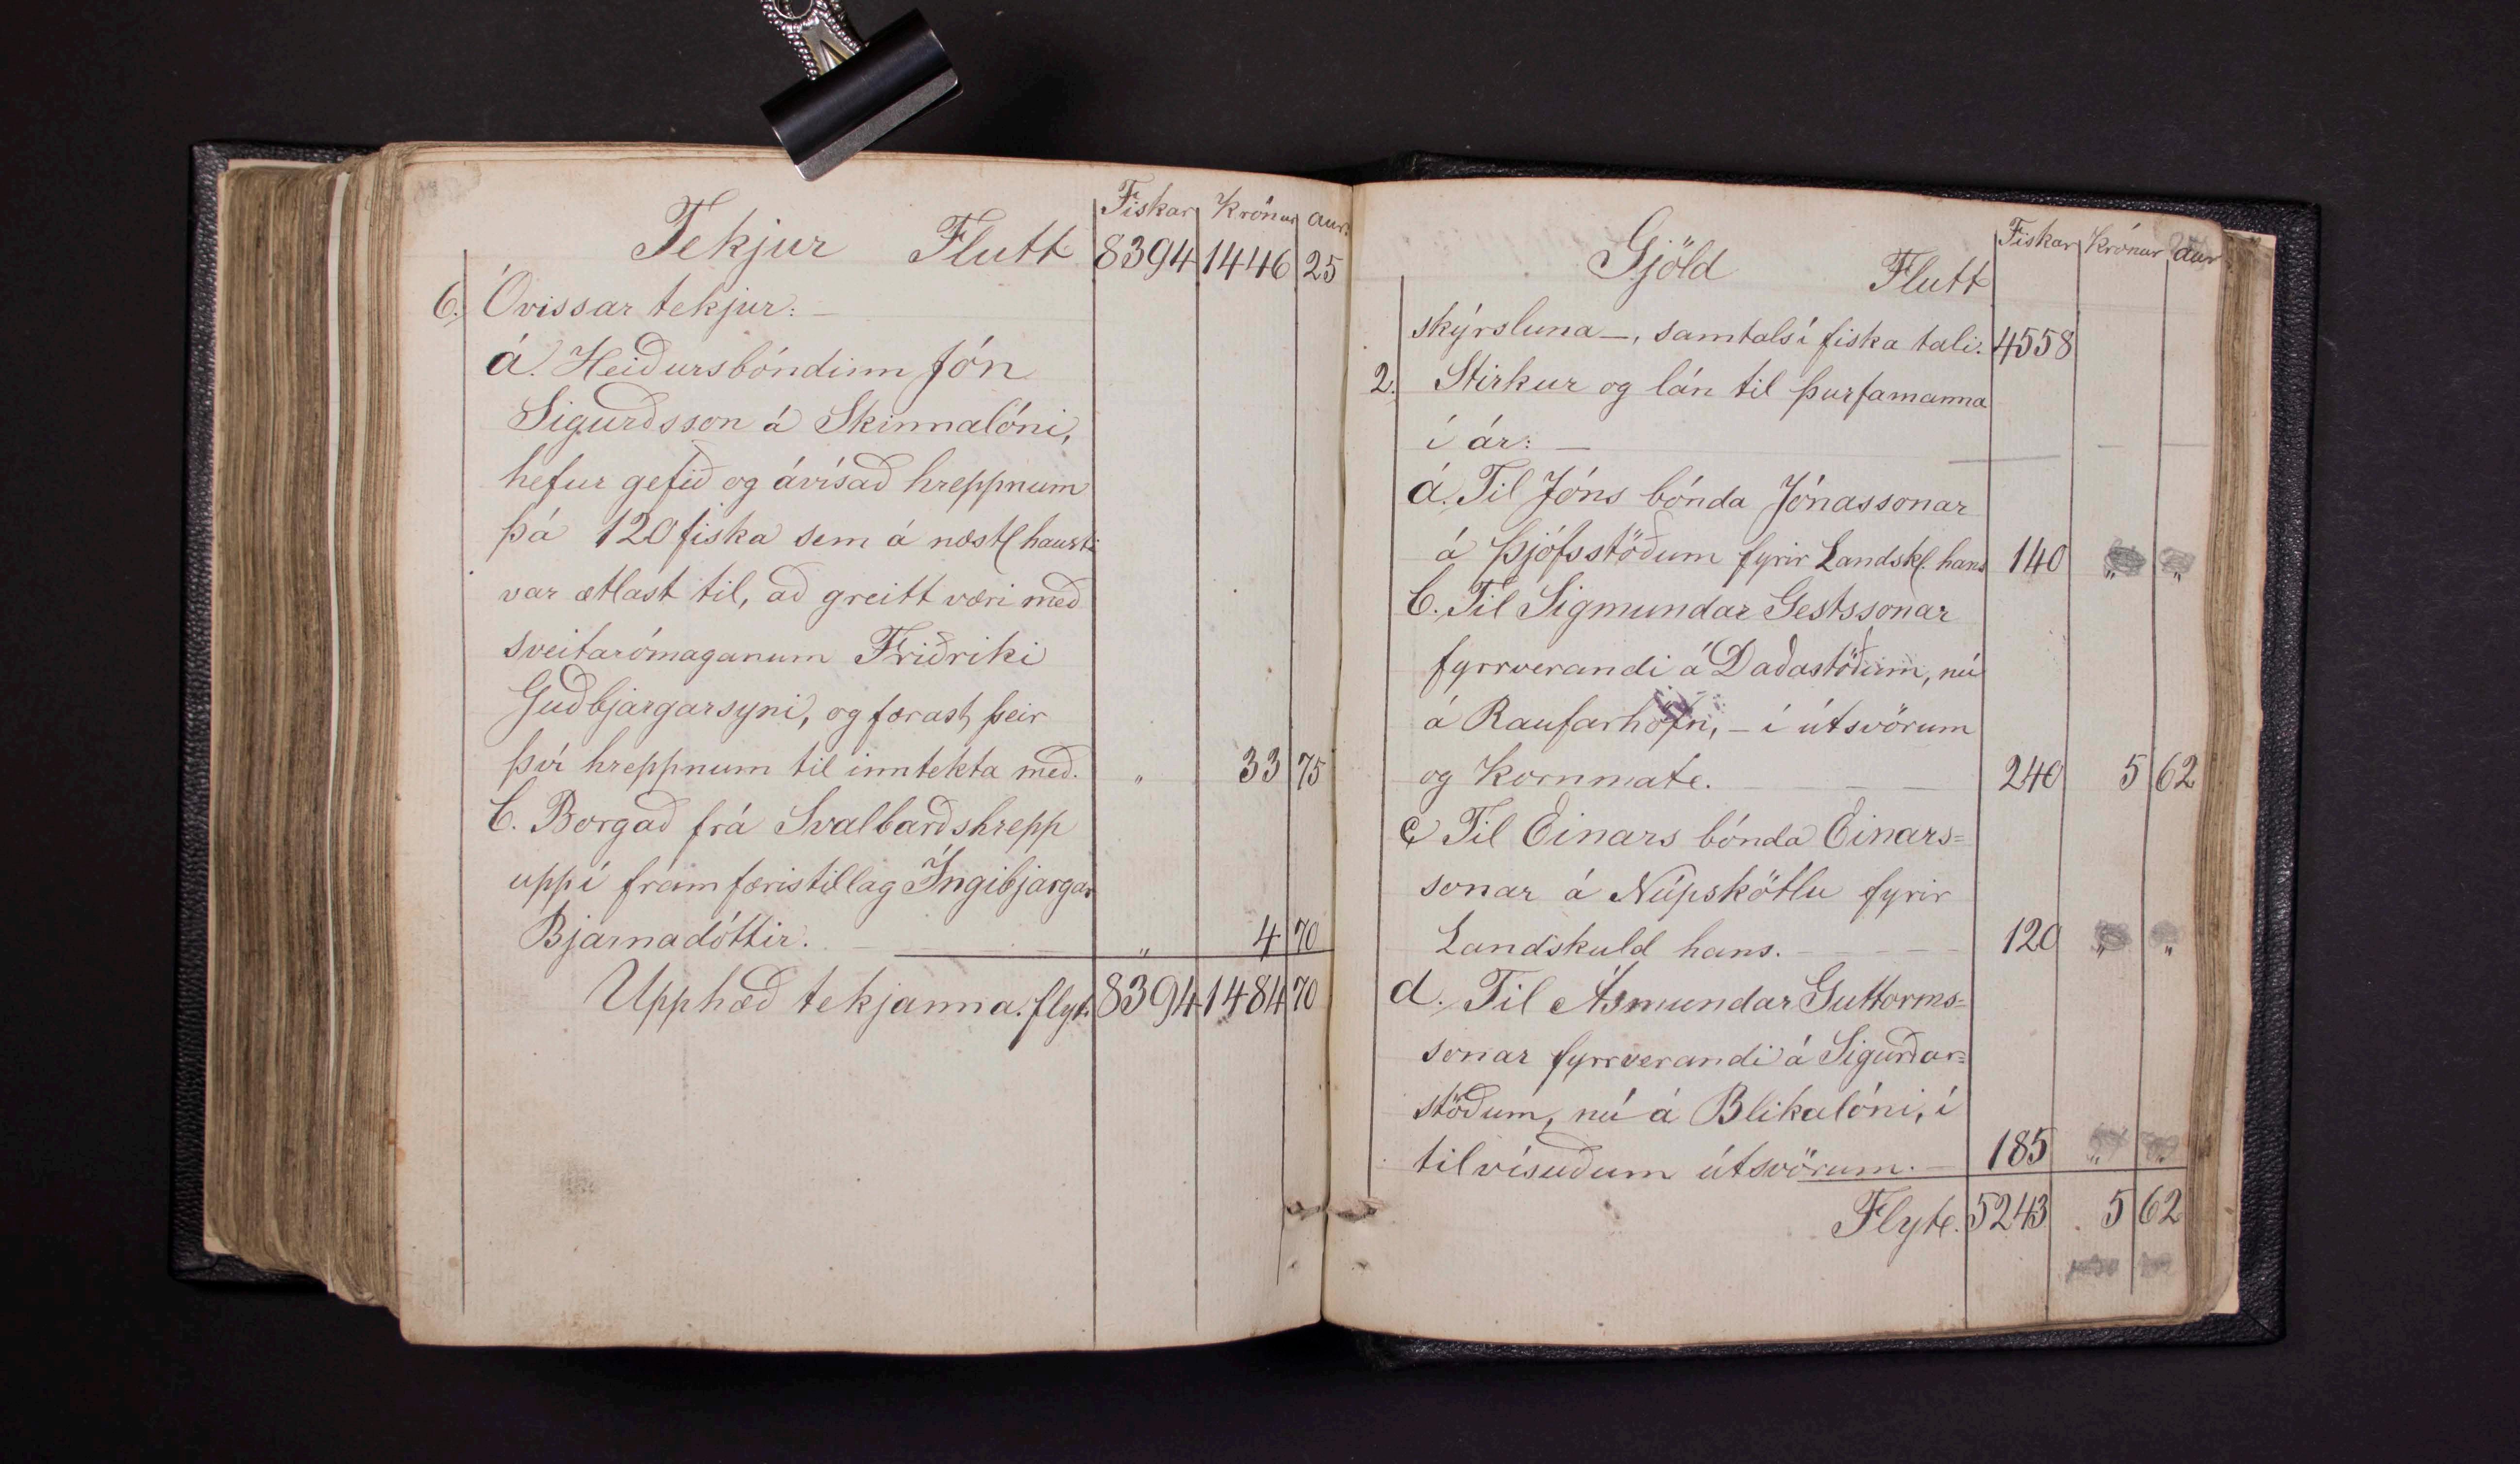 Fiskar Krónur aur.
Tekjur Flutt 8394 1446 25
6. Óvissar tekjur: –
á. Heiðursbóndinn Jón
Sigurðsson á Skinnalóni,
hefur gefið og ávísað hreppnum
þá 120 fiska sem á næstl hausti
var ætlast til, að greitt væri með
sveitarómaganum Friðriki
Guðbjargarsyni, og færast þeir
því hreppnum til inntekta með. „ 33 75
b. Borgað frá Svalbarðshrepp
uppí framfæristillag Íngibjargar
Bjarnadóttir. „ 4 70
Upphæð tekjanna. flyt. 8394 1484 70
Fiskar Krónur aur
Gjöld Flutt
skýrsluna –, samtals í fiska tali. 4558
2. Stirkur og lán til þurfamanna
í ár: –
á. Til Jóns bónda Jónassonar
á Þjófsstöðum fyrir Landskl. hans 140 „ „
b. Til Sigmundar Gestssonar
fyrrverandi á Daðastöðum, nú
á Raufarhöfn, – í útsvörum
og Kornmate. 240 5 62
c. Til Einars bónda Einars=
sonar á Núpskötlu fyrir
Landskuld hans. 120 „ „
d. Til Ásmundar Guttorms=
sonar fyrrverandi á Sigurðar=
stöðum, nú á Blikalóni, í
tilvísuðum útsvörum. – 185 „ „
Flyt. 5243 5 62